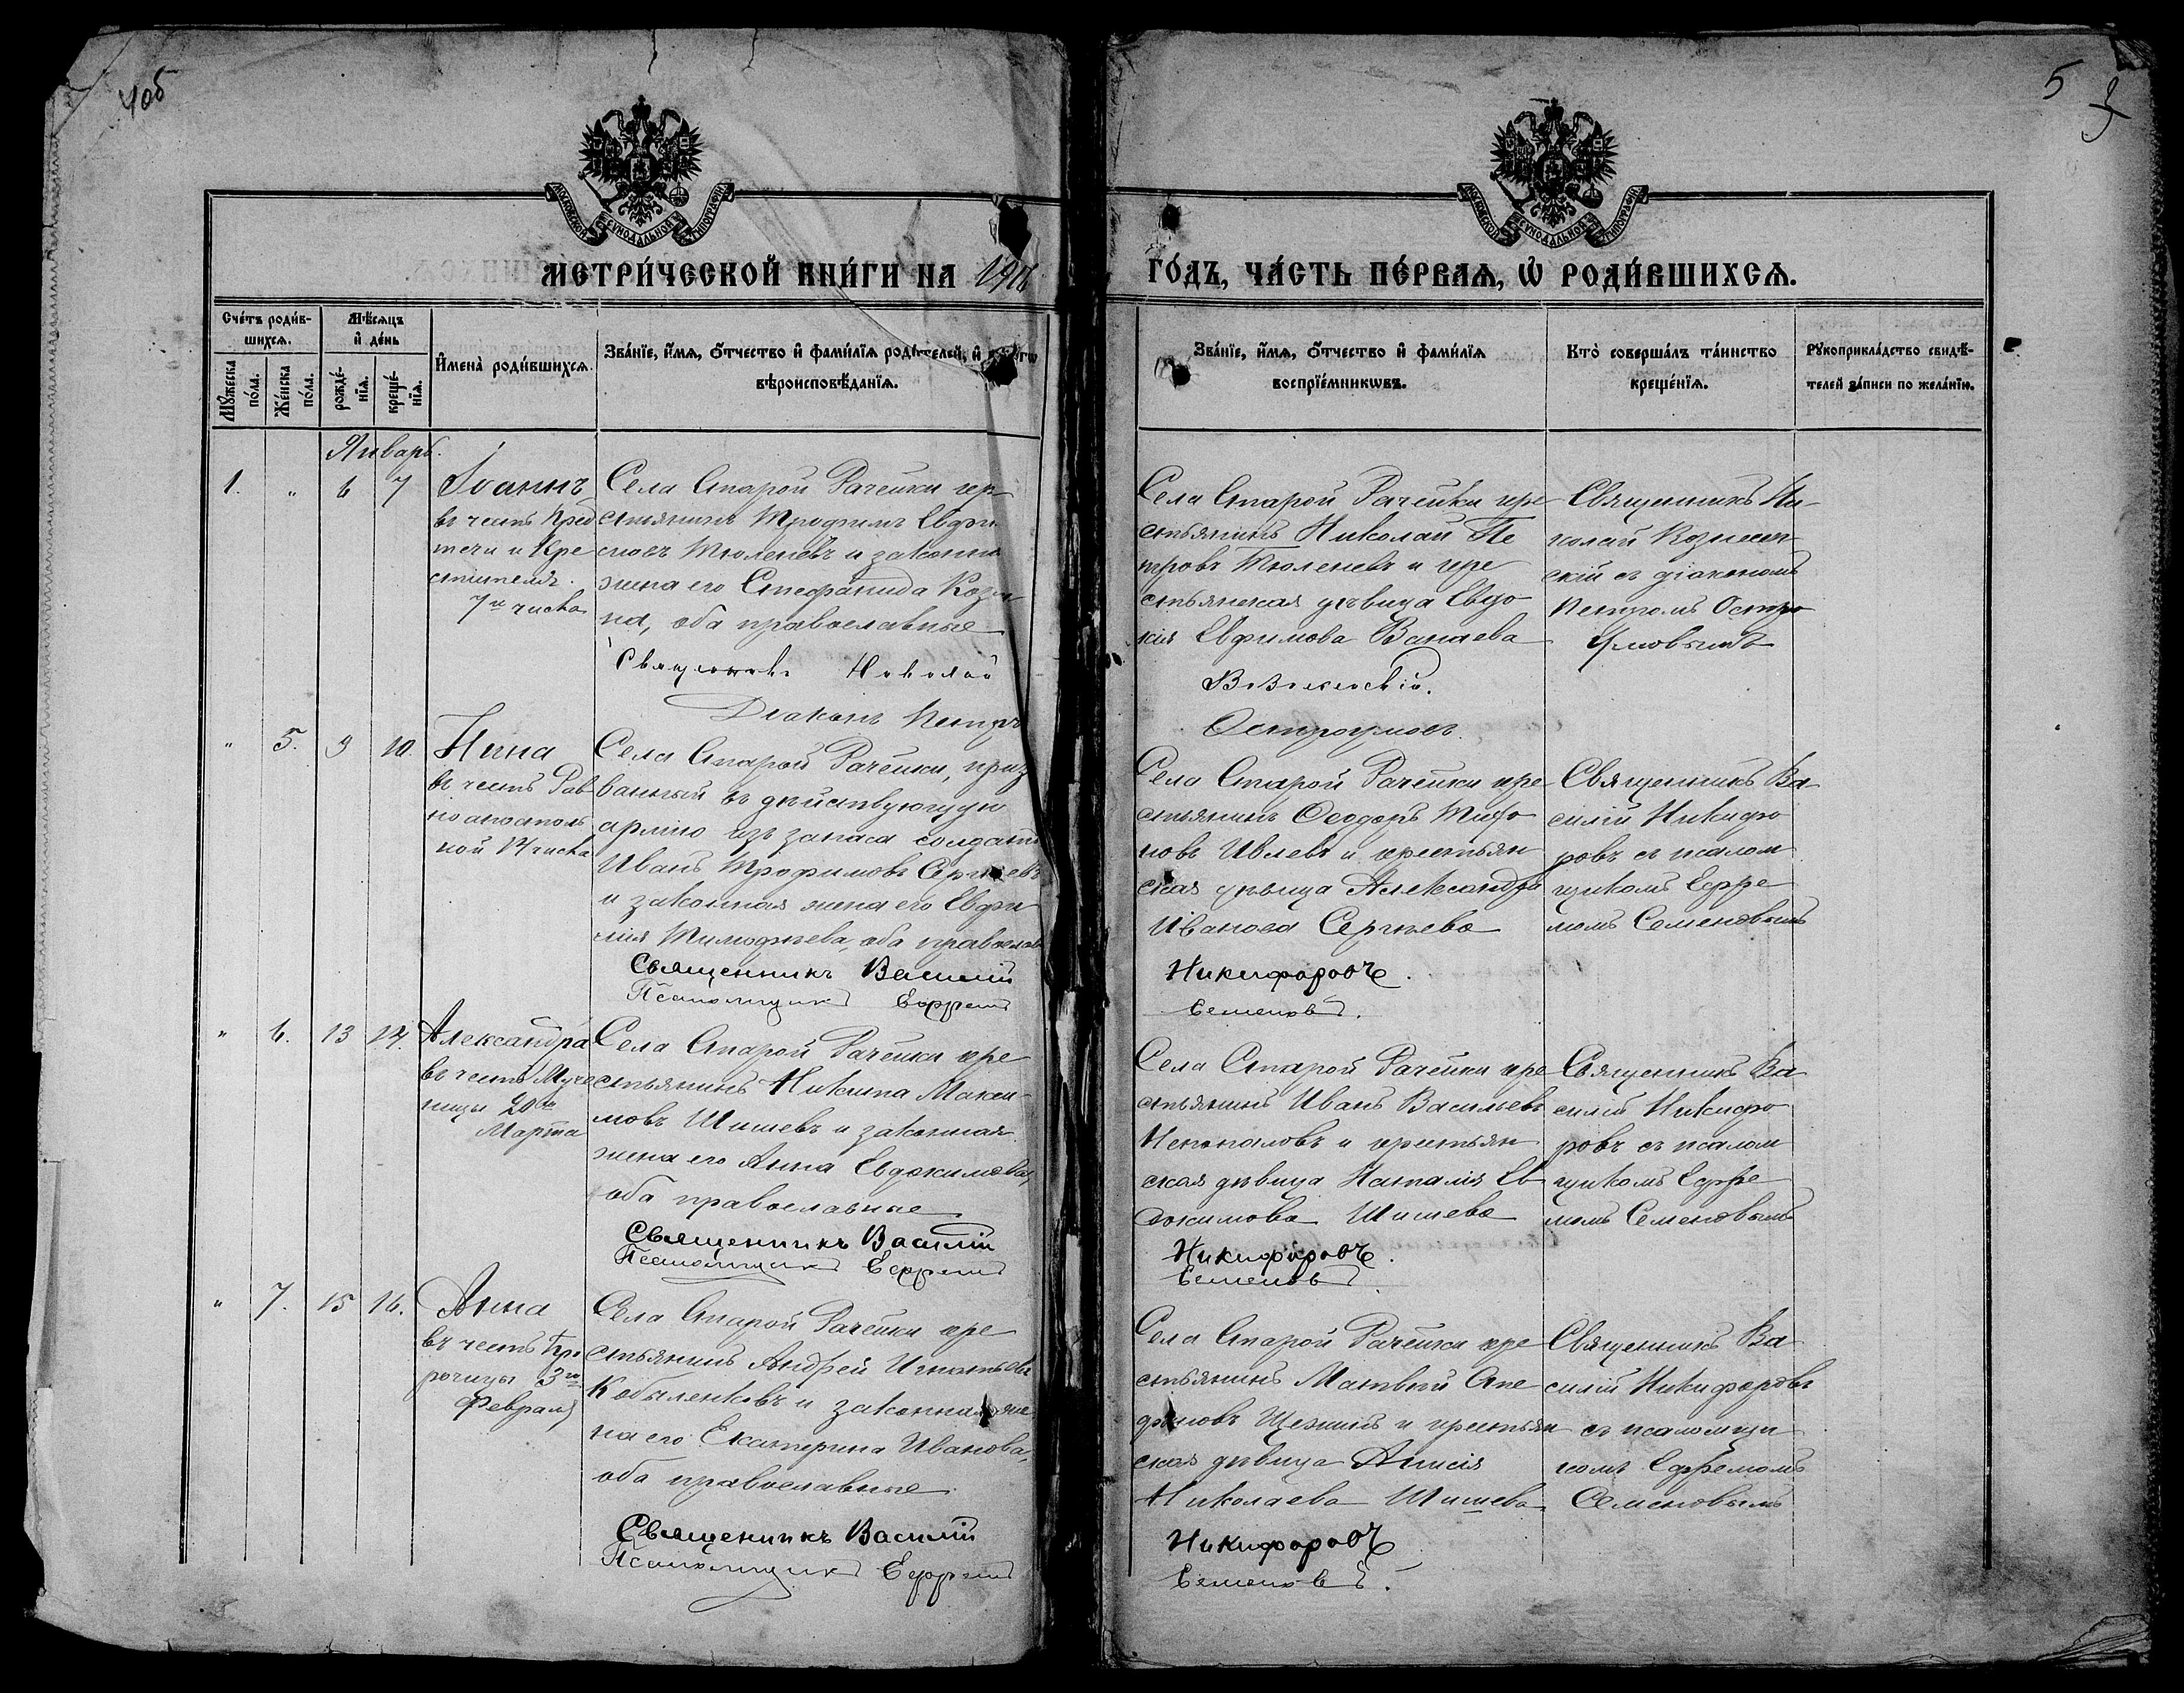 4об
5
МОСКОВСКОЙ СѴНОДАЛЬНОЙ ТИПОГРАФІИ
МОСКОВСКОЙ СѴНОДАЛЬНОЙ ТИПОГРАФІИ
МЕТРИ́ЧЕСКОЙ КНИ́ГИ НА 1916
ГО́ДЪ, ЧА́СТЬ ПЕ́РВАѦ, Ѡ РОДИ́ВШИХСѦ.
Сче́тъ роди́в-
шихсѧ.
Мꙋ́жеска по́ла.
Же́нска по́ла.
Мѣ́сѧцъ и де́нь
рожде́-нїѧ.
креще́-нїѧ.
И҆мена̀ роди́вшихсѧ.
Зва́нїе, и҆́мѧ, ѻ҆́тчество и҆ фами́лїѧ роди́телей, и҆
вѣроисповѣ́данїѧ.
Зва́нїе, и҆́мѧ, ѻ҆́тчество и҆ фами́лїѧ
воспрїе́мникѡвъ.
Кто̀ соверша́лъ та́инство
креще́нїѧ.
Рꙋкоприкла́дство свидѣ́-
телей за́писи по жела́нїю.
Январь.
1. " 6 7
Іоаннъ
въ честь Пред
течи и Кре
стителя.
7го числа
Села Старой Рачейки кре
стьянинъ Трофимъ Евфи
мовъ Тюленевъ и законна
жена его Стефанида Козь
ма, оба православные
Священникъ Николай
Діаконъ Петръ
Села Старой Рачейки кре
стьянинъ Николай Пе
тровъ Тюленевъ и кре
стьянская дѣвица Евдо
кія Евфимова Ванаева
Вознесенскій.
Остроумовъ.
Священникъ Ни-
колай Вознесен-
скій съ діакономъ
Петромъ Остро
умовымъ
" 5. 9 10.
Нина
въ честь Рав
ноапостоль
ной 14 числа
Села Старой Рачейки, приз
ванный въ дѣйствующую
армію изъ запаса солдатъ
Иванъ Трофимовъ Сергѣевъ
и законная жена его Евфи
мія Тимофеева, оба православ
Священникъ Василій
Псаломщикъ Ефремъ
Села Старой Рачейки кре
стьянинъ Ѳеодоръ Тихо
новъ Ивлевъ и крестьян
ская дѣвица Александра
Иванова Сергѣева
Никифоровъ.
Семеновъ.
Священникъ Ва
силій Никифо
ровъ съ псалом
щикомъ Ефре
момъ Семеновымъ
" 6. 13 14.
Александра
въ честь Муче
ницы 20го
Марта
Села Старой Рачейки кре
стьянинъ Никита Макси-
мовъ Шишевъ и законная
жена его Анна Евдокимова,
оба православные
Священникъ Василій
Псаломщикъ Ефремъ
Села Старой Рачейки кре
стьянинъ Иванъ Васильевъ
и крестьян
ская дѣвица Наталія Ев
докимова Шишева
Никифоровъ.
Семеновъ.
Священникъ Ва
силій Никифо
ровъ съ псалом
щикомъ Ефре
момъ Семеновымъ
" 7. 15 16.
Анна
въ честь Про
рочицы 3го
Февраля
Села Старой Рачейки кре
стьянинъ Андрей Игнатьевъ
Кобыленковъ и законная же
на его Екатерина Иванова,
оба православные.
Священникъ Василій
Псаломщикъ Ефремъ
Села Старой Рачейки кре
стьянинъ Матвѣй Сте
фановъ и крестьян
ская дѣвица Анисія
Николаева Шишева
Никифоровъ
Семеновъ.
Священникъ Ва
силій Никифоровъ
съ псаломщи
комъ Ефремомъ
Семеновымъ